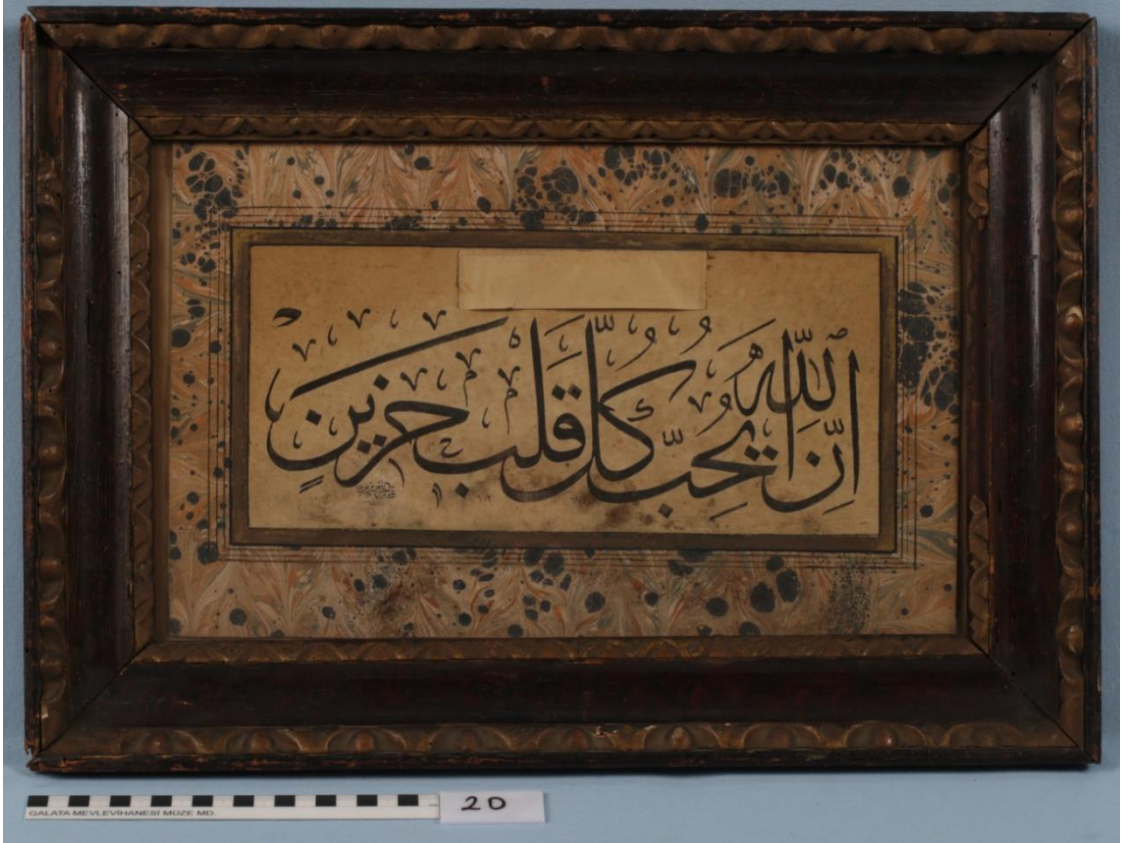 اِنَّ اللّٰهَ يُحِبُّ كُلَّ قَلْبٍ حَزِينٍ
GALATA MEVLEVİHANESİ MÜZE MD.
20